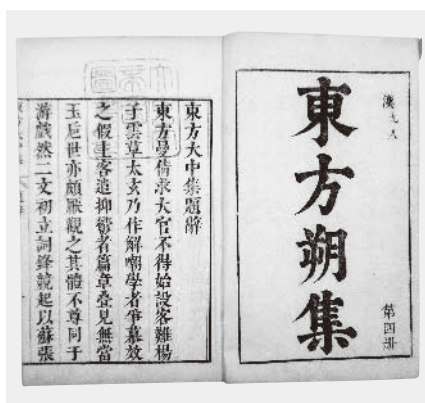 漢九人
東方朔集
第四冊
東方大中集題辭
東方曼倩求大官不得始設客難揚
子雲草太玄乃作解嘲學者爭慕效
之假主客遣抑鬱者篇章疊見無當
玉巵世亦頗厭觀之其體不尊同于
游戲然二文初立詞鋒競起以蘇張